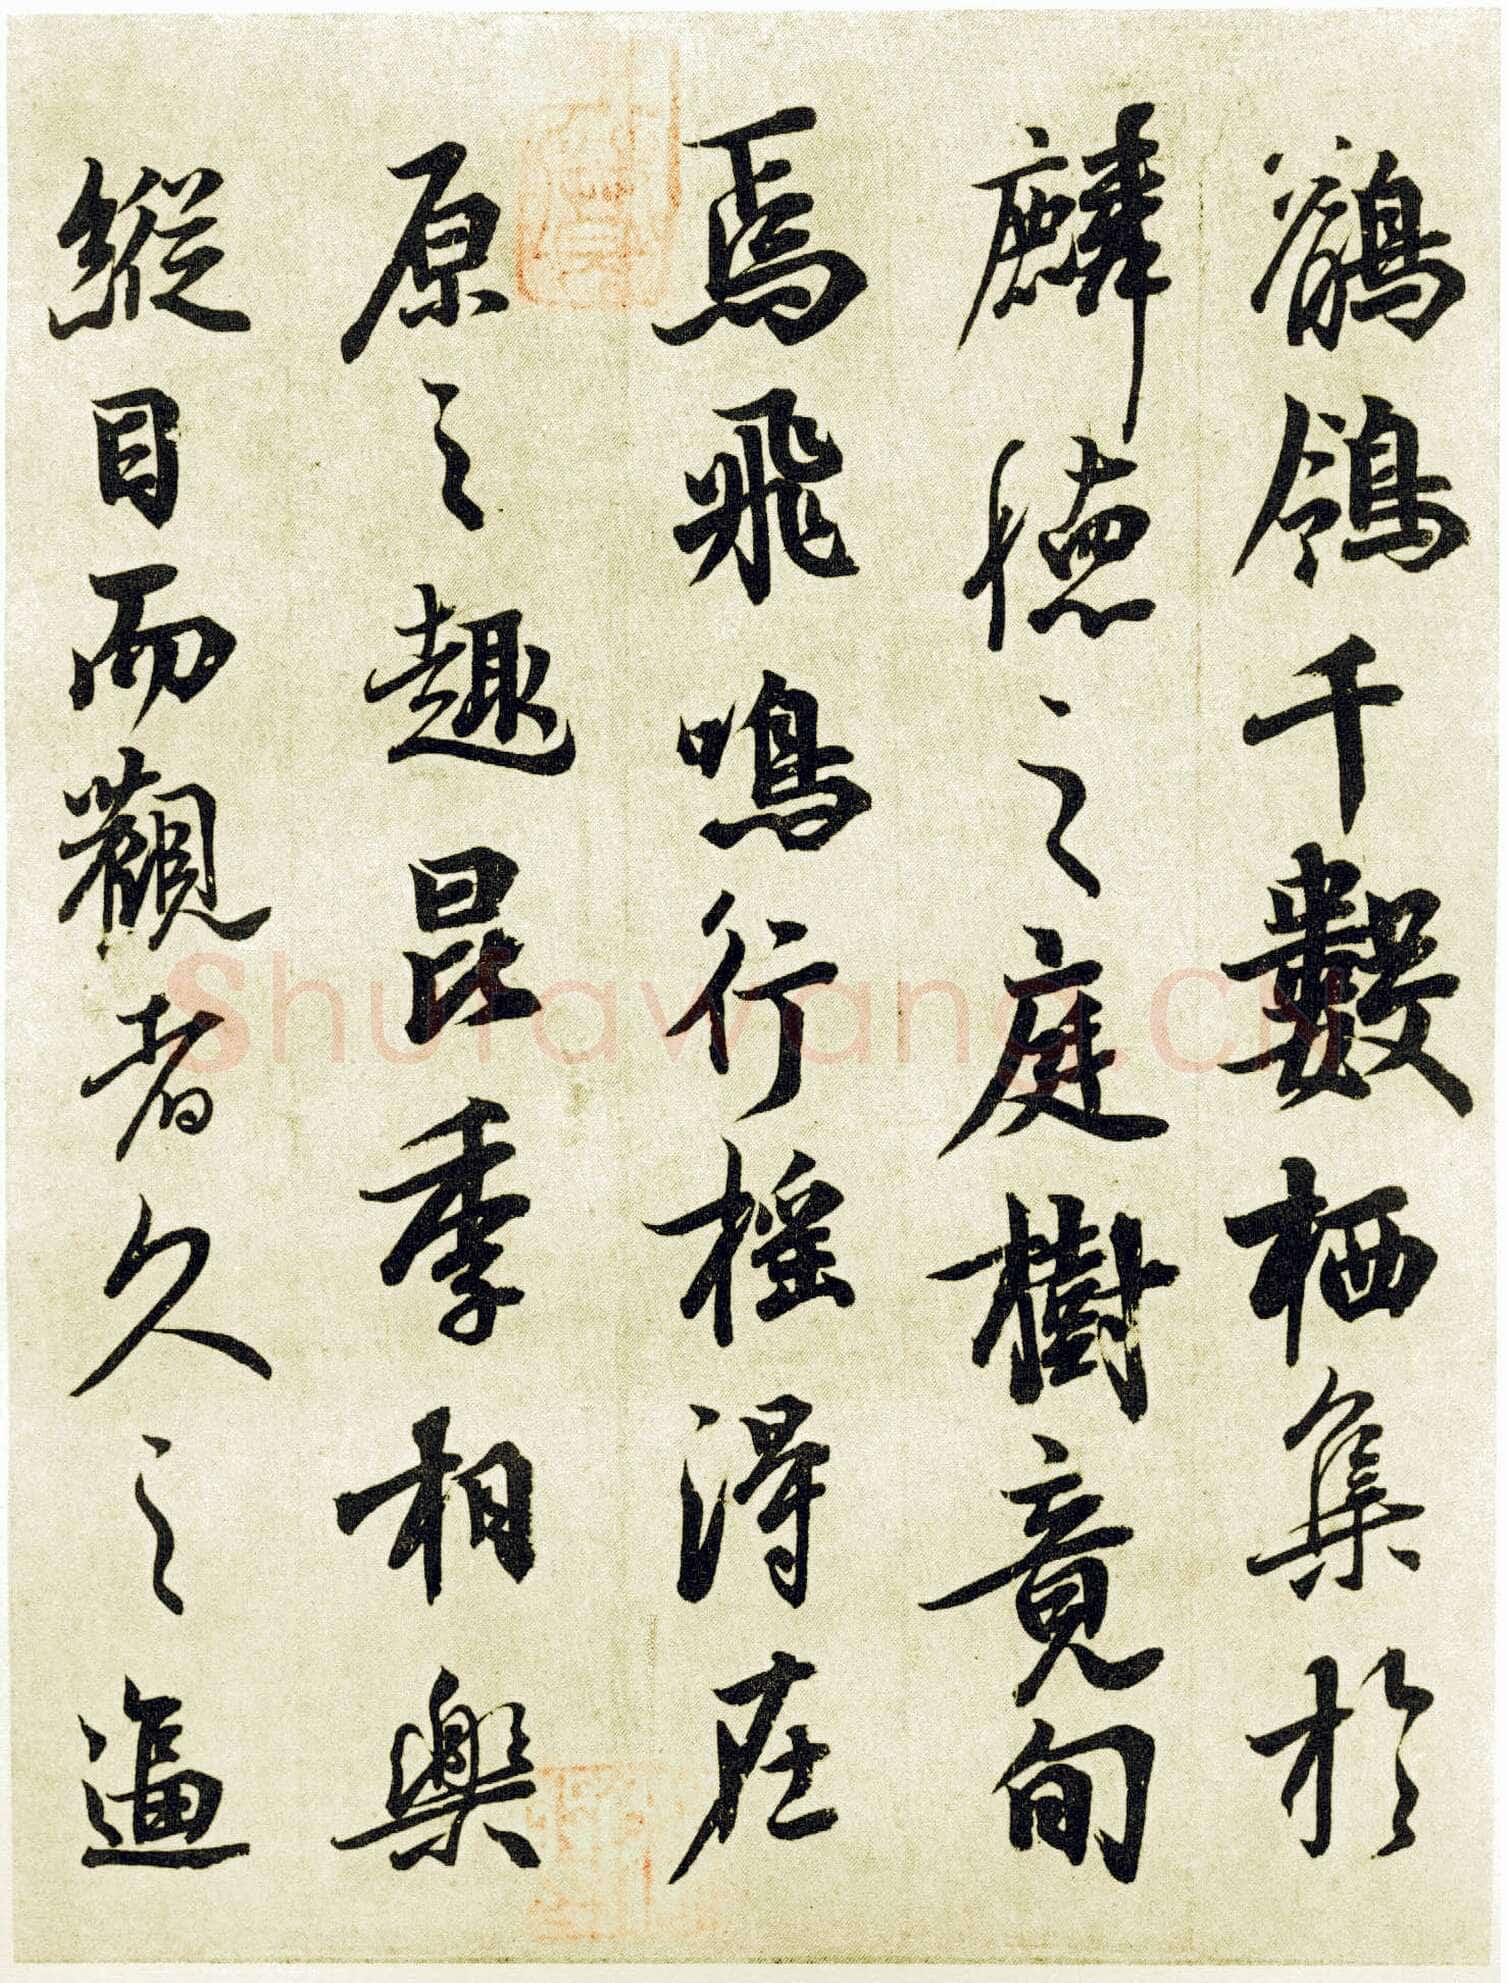 鶺鴒千數栖集於
麟德之庭樹竟旬
焉飛鳴行搖得在
原之趣昆季相樂
縱目而觀者久之逼
Shufawang.CN